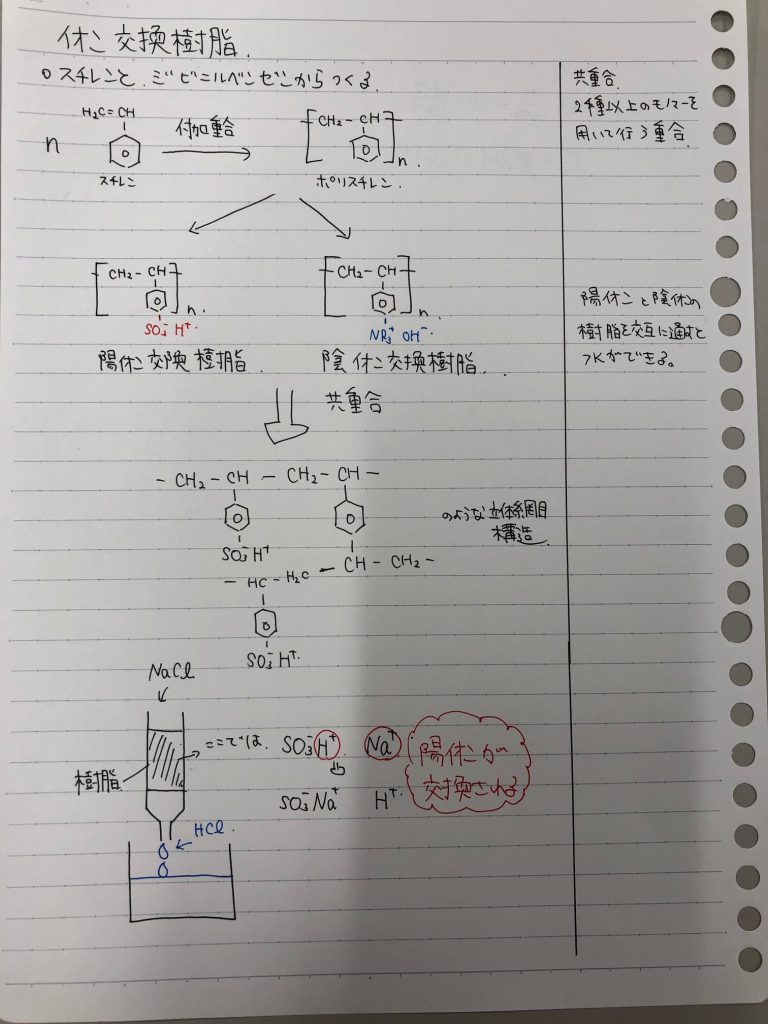 イオン交換樹脂.
○スチレンと.ジビニルベンゼンからつくる.
n
H₂C=CH
スチレン
付加重合
CH₂-CH
n.
ポリスチレン.
CH₂-CH
n.
SO₃⁻H⁺.
陽イオン交換樹脂.
CH₂-CH
n.
NR₃⁺ OH⁻.
陰イオン交換樹脂.
共重合
- CH₂ - CH - CH₂ - CH -
SO₃⁻H⁺
CH - CH₂ -
- HC - H₂C
SO₃⁻H⁺.
のような立体網目
構造.
NaCl
樹脂
ここでは.
SO₃⁻H⁺ Na⁺
SO₃⁻Na⁺ H⁺.
陽イオンが
交換される
HCl.
共重合.
2種以上のモノマーを
用いて行う重合.
陽イオンと陰イオンの
樹脂を交互に通すと
水ができる。